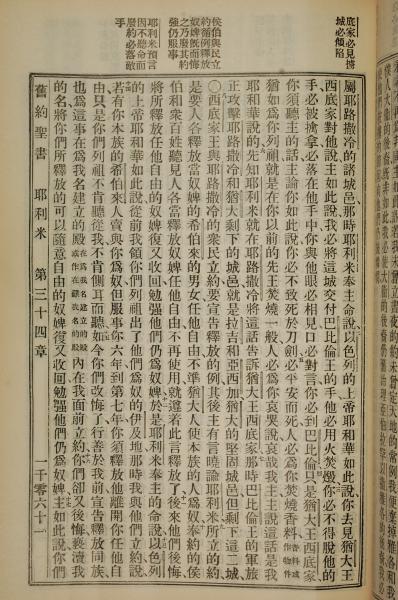 底家必見擄
城必傾陷
侯伯與民立
約循例釋放
奴婢旣而悔
之乃廢其約
強仍服事
耶利米預言
因不聽命而
廢約必落敵
手
屬耶路撒冷的諸城邑、那時耶利米奉主命說、以色列的上帝耶和華如此說、你去見猶大王
西底家對他說主如此說、我必將這城交付巴比倫王的手、他必用火焚燬、你必不得脫他的
手、必被擒拿、必落在他手中、你與他眼必相見、口必對言、你必到巴比倫、只是猶大王西底家
你須聽主的話、主論你如此說、你必不致死於刀劍、必平安而死、人必爲你焚燒香料
猶如爲你列祖就是在你以前的先王焚燒一般、人必爲你哀哭說、哀哉我主、主說這話是我
耶和華說的、先知耶利米就在耶路撒冷將這話告訴猶大王西底家、那時巴比倫王的軍旅
正攻擊耶路撒冷和猶大剩下的城邑、就是拉吉和亞西加、猶大的堅固城邑、但剩下這二城、
○西底家王與耶路撒冷的衆民立約、要宣告釋放的例、其後主有言曉諭耶利米、所立的約
是要人各釋放當奴婢的希伯來的男女、任他自由、不準猶大人使本族的人爲奴、奉約的侯
伯和衆百姓聽見人各當釋放奴婢、任他自由、不再使用、就遵着此言釋放了、後來他們後悔
將所釋放任他自由的奴婢復又收回、勉強他們仍爲奴婢、於是耶利米奉主的命說、以色列
的上帝耶和華如此說、從前我領你們列祖出了他們爲奴的伊及地、那時我與他們立約說
若有你本族的希伯來人賣與你爲奴、但服事你六年、到第七年你須釋放他離開你、任他自
由、只是你們列祖不肯聽從我、不肯側耳而聽、如今你們改悔了、行善於我前、宣告釋放同族
也爲這事在爲我名建立的殿 在爲我名建立的殿或作在歸我名的殿 內、在我面前立約、你們卻又後悔褻瀆我
的名、將你們所釋放的可以隨意自由的奴婢復又收回、勉強他們仍爲奴婢、主如此說、你們
舊約聖書 耶利米 第三十四章 一千零六十一